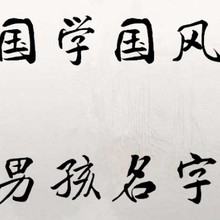 国学国风
男孩名字